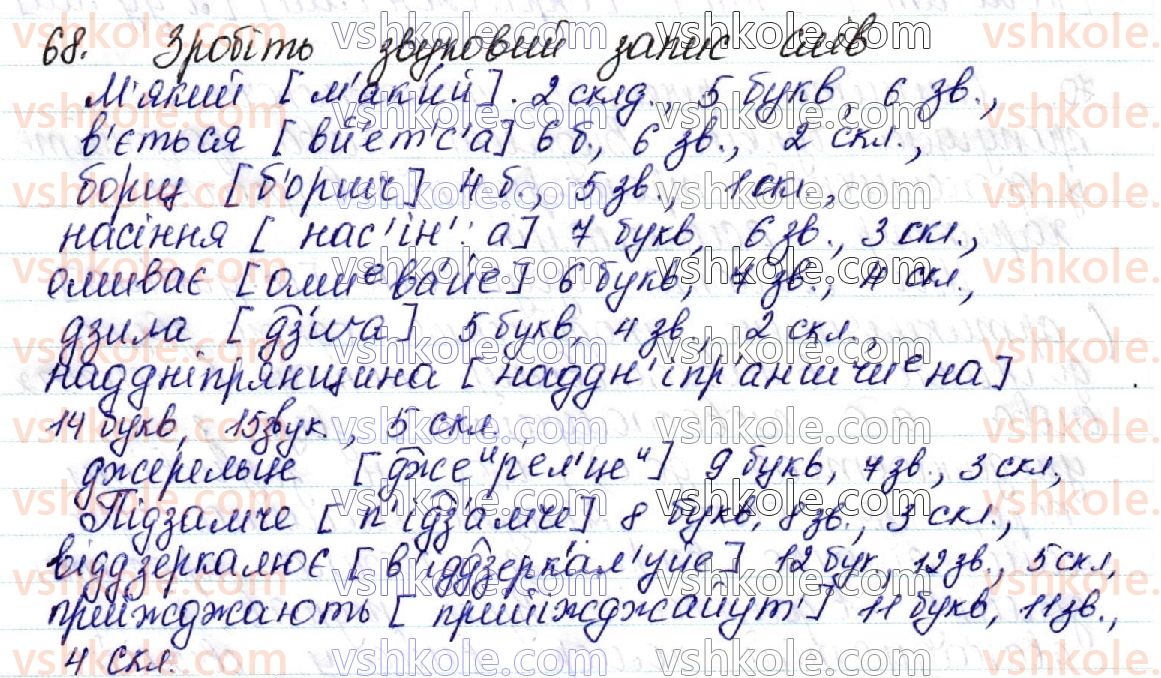 68. Зробіть звуковий запис слів
М'який [м'аки́й]. 2 склд., 5 букв, 6 зв.,
в'ється [вйе́т'с'а] 6 б., 6 зв., 2 скл.,
борщ [б'оршч] 4 б., 5 зв., 1 скл.,
насіння [нас'ін':а] 7 букв, 6 зв., 3 скл.,
омиває [омиᵉва́йе] 6 букв, 7 зв., 4 скл.,
дзила [дзи́ча] 5 букв, 4 зв., 2 скл.,
наддніпрянщина [наддн'іпр'аншчиᵉна]
14 букв, 15 звук., 5 скл.,
джерельце [джеᶦре́л'цеᶦ] 9 букв, 7 зв., 3 скл.,
Підзамче [п'ідза́мче] 8 букв, 8 зв., 3 скл.,
віддзеркалює [в'іддзерка́л'уйе] 12 бук, 12 зв., 5 скл,
приїжджають [прийіжджа́йут'] 11 букв, 11 зв.,
4 скл.
vshkole.com